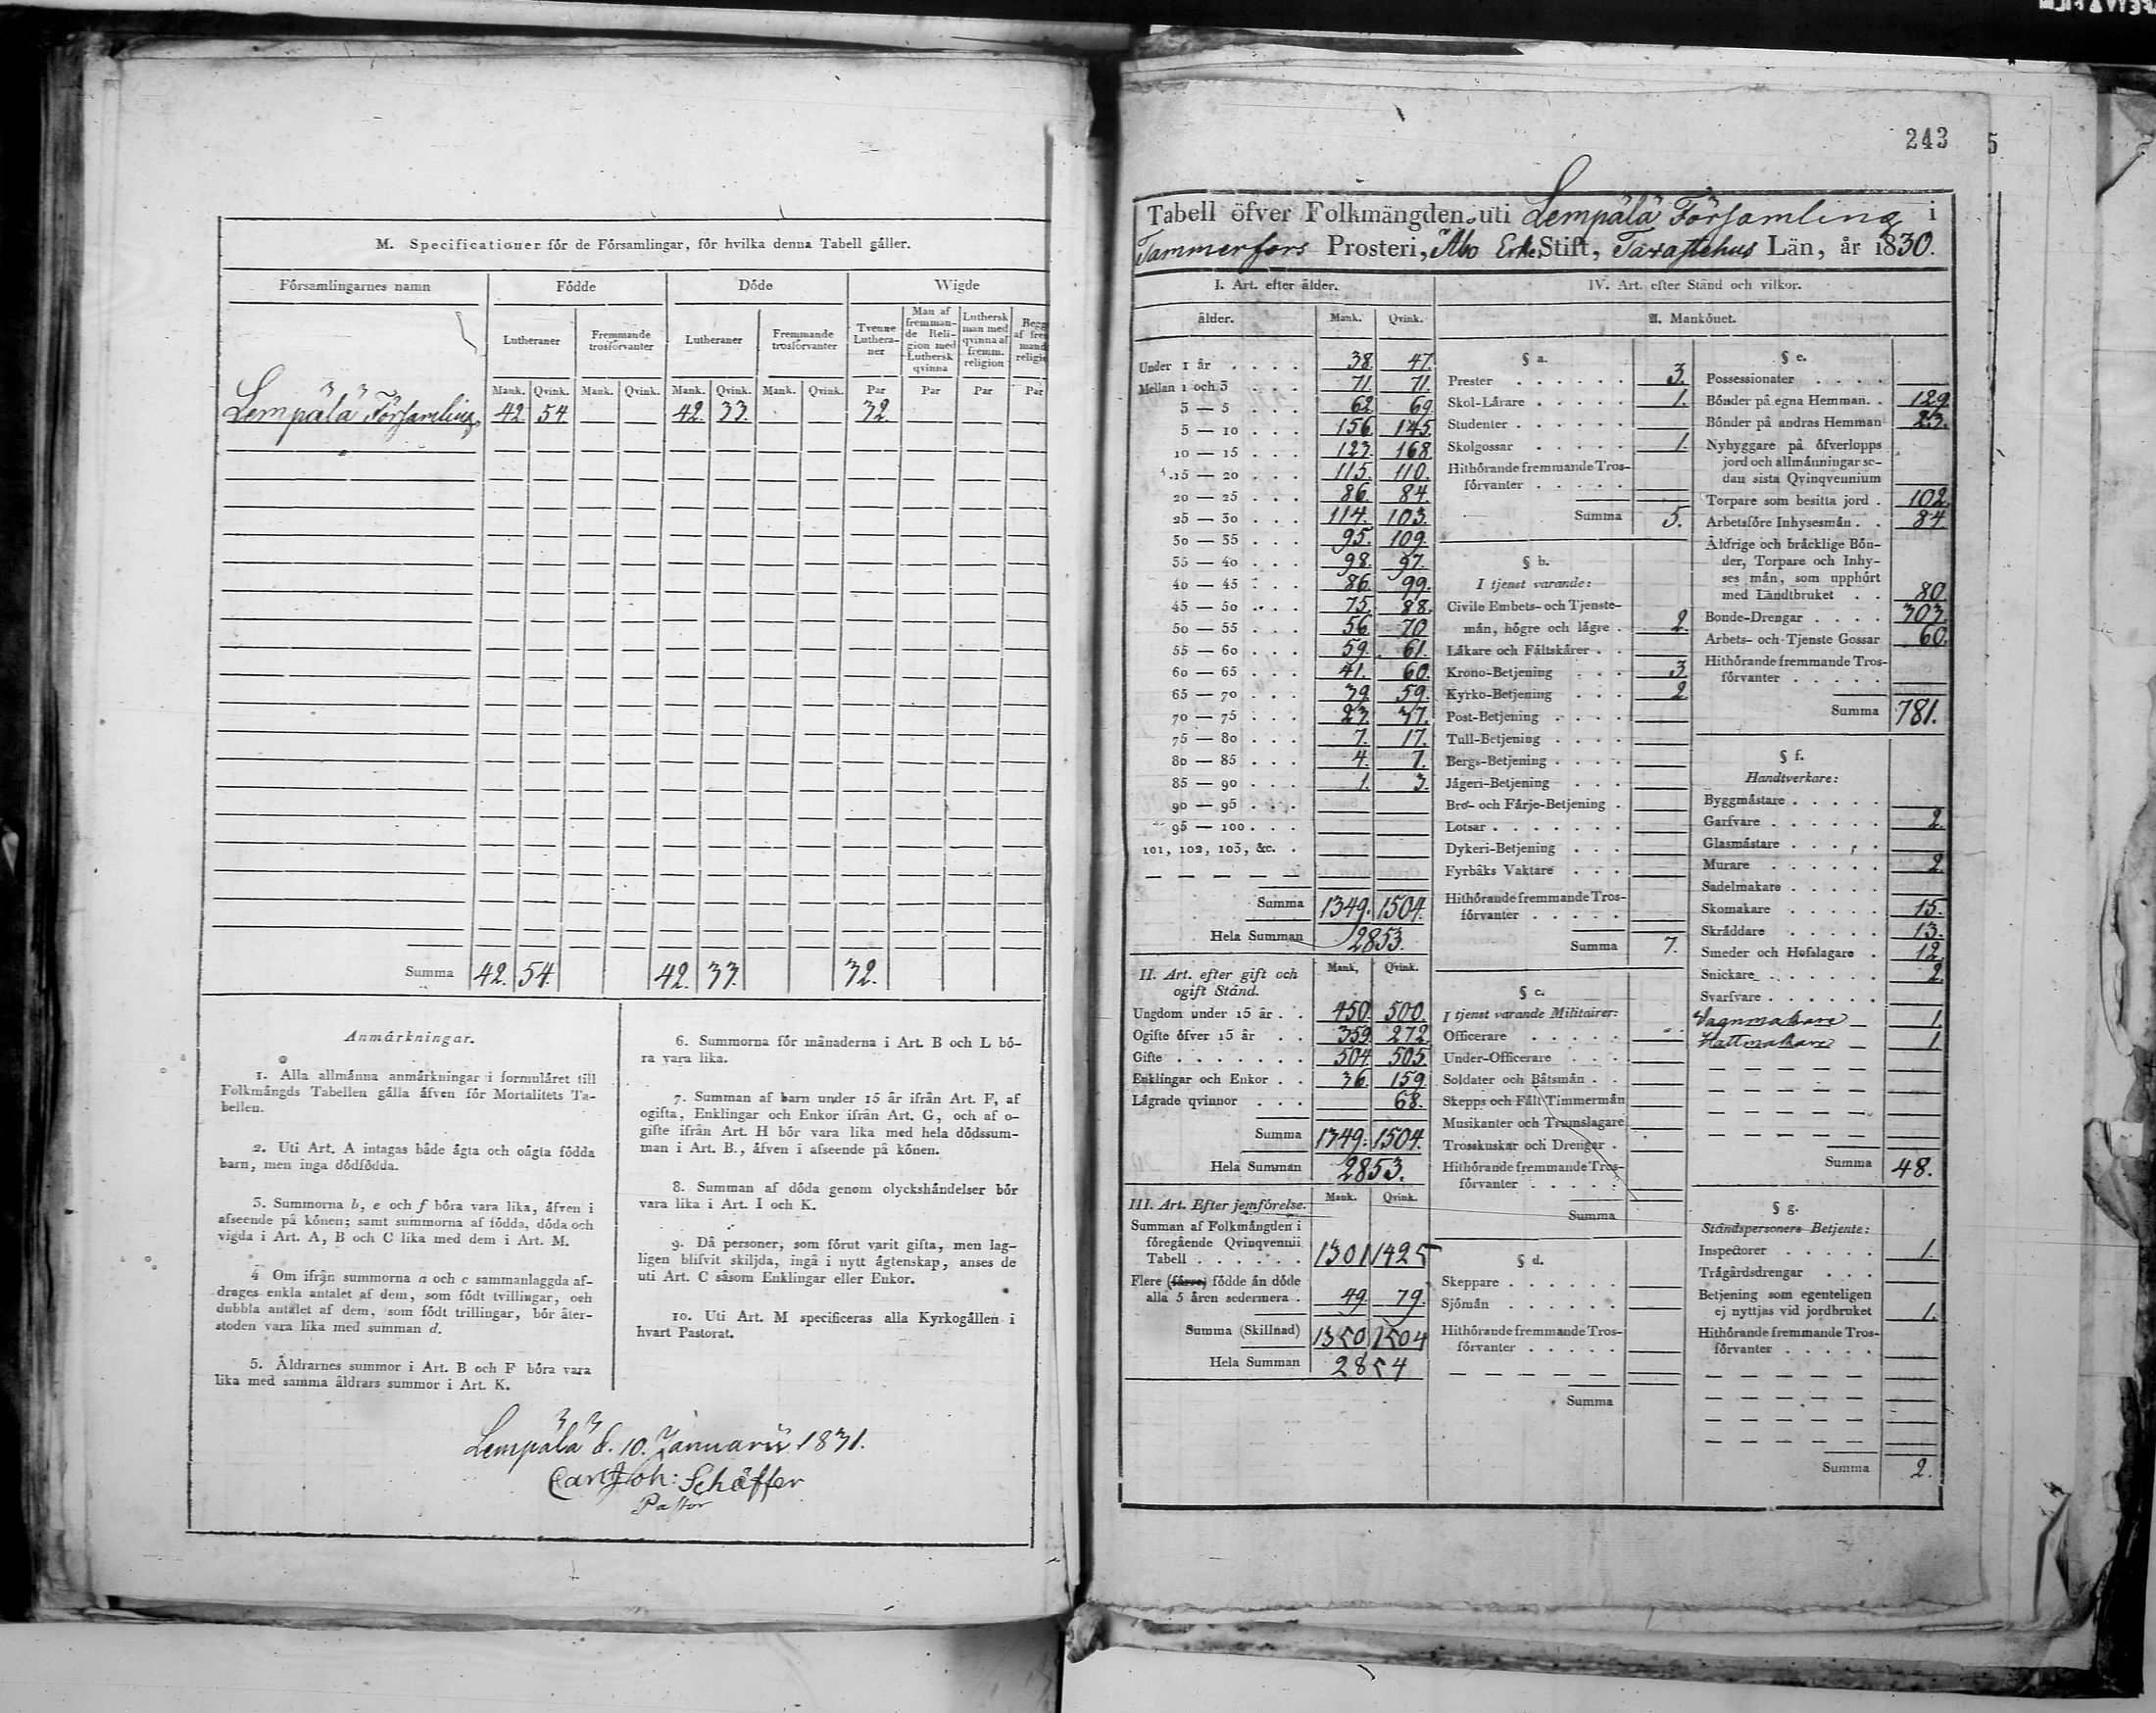 M. Specificationer för de Församlingar, för hvilka denna Tabell gäller.
Församlingarnes namn | Födde | Döde | Wigde
Lutheraner | Fremmande trosförvanter | Lutheraner | Fremmande trosförvanter | Tvenne Lutheraner | Man af fremmande Religion med Luthersk qvinna | Luthersk man med qvinna af fremm. religion
Mank. | Qvink. | Mank. | Qvink. | Mank. | Qvink. | Mank. | Qvink. | Par | Par | Par | Par
Lempälä Församling | 42. | 54. | — | — | 42. | 33. | — | — | 32. | — | — | —
Summa | 42. | 54. | | | 42. | 33. | | | 32.
Anmärkningar.
1. Alla allmänna anmärkningar i formuläret till
Folkmängds Tabellen gälla äfven för Mortalitets Ta-
bellen.
2. Uti Art. A intagas både ägta och oägta födda
barn, men inga dödfödda.
3. Summorna b, e och f böra vara lika, äfven i
afseende på könen; samt summorna af födda, döda och
vigda i Art. A, B och C lika med dem i Art. M.
4. Om ifrån summorna a och c sammanlaggda af-
drages enkla antalet af dem, som födt tvillingar, och
dubbla antalet af dem, som födt trillingar, bör åter-
stoden vara lika med summan d.
5. Åldrarnes summor i Art. B och F böra vara
lika med samma åldrars summor i Art. K.
6. Summorna för månaderna i Art. B och L bö-
ra vara lika.
7. Summan af barn under 15 år ifrån Art. F, af
ogifta, Enklingar och Enkor ifrån Art. G, och af o-
gifte ifrån Art. H bör vara lika med hela dödssum-
man i Art. B., äfven i afseende på könen.
8. Summan af döda genom olyckshändelser bör
vara lika i Art. I och K.
9. Då personer, som förut varit gifta, men lag-
ligen blifvit skiljda, ingå i nytt ägtenskap, anses de
uti Art. C såsom Enklingar eller Enkor.
10. Uti Art. M specificeras alla Kyrkogällen i
hvart Pastorat.
Lempälä d. 10. Januarii 1831.
Carl Joh: Schäffer
Pastor
243
5
Tabell öfver Folkmängden uti Lempälä Församling i
Tammerfors Prosteri, Åbo Erke Stift, Tavastehus Län, år 1830.
I. Art. efter ålder.
ålder. | Mank. | Qvink.
Under 1 år . . . . | 38. | 47.
Mellan 1 och 3 | 71. | 71.
3 — 5 . . . | 62. | 69.
5 — 10 . . . | 156. | 145.
10 — 15 . . . | 123. | 168.
15 — 20 . . . | 115. | 110.
20 — 25 . . . | 86. | 84.
25 — 30 . . . | 114. | 103.
30 — 35 . . . | 95. | 109.
35 — 40 . . . | 98. | 97.
40 — 45 . . . | 86. | 99.
45 — 50 . . . | 75. | 88.
50 — 55 . . . | 56. | 70
55 — 60 . . . | 59. | 61.
60 — 65 . . . | 41. | 60.
65 — 70 . . . | 39. | 59.
70 — 75 . . . | 23. | 37.
75 — 80 . . . | 7. | 17.
80 — 85 . . . | 4. | 7.
85 — 90 . . . | 1. | 3.
90 — 95 . . .
95 — 100 . . .
101, 102, 103, &c. .
Summa | 1349. | 1504.
Hela Summan | 2853.
II. Art. efter gift och
ogift Stånd. | Mank. | Qvink.
Ungdom under 15 år . . | 450. | 500.
Ogifte öfver 15 år . . | 359. | 272.
Gifte . . . . . . . | 504. | 505.
Enklingar och Enkor . . | 36. | 159.
Lägrade qvinnor . . . | | 68.
Summa | 1349. | 1504.
Hela Summan | 2853.
III. Art. Efter jemförelse. | Mank. | Qvink.
Summan af Folkmängden i
föregående Qvinqvennii
Tabell . . . . . . | 1301 | 1425
Flere (färre) födde än döde
alla 5 åren sedermera . | 49. | 79.
Summa (Skillnad) | 1350 | 1504
Hela Summan | 2854
IV. Art. efter Stånd och vilkor.
A. Mankönet.
§ a.
Prester . . . . . . | 3.
Skol-Lärare . . . . . | 1.
Studenter . . . . . .
Skolgossar . . . . . | 1.
Hithörande fremmande Tros-
förvanter . . . . .
Summa | 5.
§ b.
I tjenst varande:
Civile Embets- och Tjenste-
män, högre och lägre . | 2.
Läkare och Fältskärer . .
Krono-Betjening . . . | 3.
Kyrko-Betjening . . . | 2
Post-Betjening . . . .
Tull-Betjening . . . .
Bergs-Betjening . . . .
Jägeri-Betjening . . .
Bro- och Färje-Betjening .
Lotsar . . . . . . .
Dykeri-Betjening . . .
Fyrbåks Vaktare . . .
Hithörande fremmande Tros-
förvanter . . . . .
Summa | 7.
§ c.
I tjenst varande Militairer:
Officerare . . . . .
Under-Officerare . . .
Soldater och Båtsmän . .
Skepps och Fält Timmermän
Musikanter och Trumslagare
Trosskuskar och Drengar .
Hithörande fremmande Tros-
förvanter . . . . .
Summa
§ d.
Skeppare . . . . . .
Sjömän . . . . . .
Hithörande fremmande Tros-
förvanter . . . . .
Summa
§ e.
Possessionater . . . .
Bönder på egna Hemman . . | 129.
Bönder på andras Hemman | 23.
Nybyggare på öfverlopps
jord och allmänningar se-
dan sista Qvinqvennium
Torpare som besitta jord . | 102.
Arbetsföre Inhysesmän . . | 84.
Åldrige och bräcklige Bön-
der, Torpare och Inhy-
ses män, som upphört
med Landtbruket . . | 80.
Bonde-Drengar . . . . | 303.
Arbets- och Tjenste Gossar | 60.
Hithörande fremmande Tros-
förvanter . . . . .
Summa | 781.
§ f.
Handtverkare:
Byggmästare . . . . .
Garfvare . . . . . . | 2.
Glasmästare . . . . .
Murare . . . . . | 2.
Sadelmakare . . . . .
Skomakare . . . . . | 15.
Skräddare . . . . . | 13.
Smeder och Hofslagare . | 12.
Snickare . . . . . . | 2.
Svarfvare . . . . . .
Vagnmakare — | 1.
Hattmakare — | 1.
Summa | 48.
§ g.
Ståndspersoners Betjente:
Inspectorer . . . . . | 1.
Trägårdsdrengar . . .
Betjening som egenteligen
ej nyttjas vid jordbruket | 1.
Hithörande fremmande Tros-
förvanter . . . . .
Summa | 2.